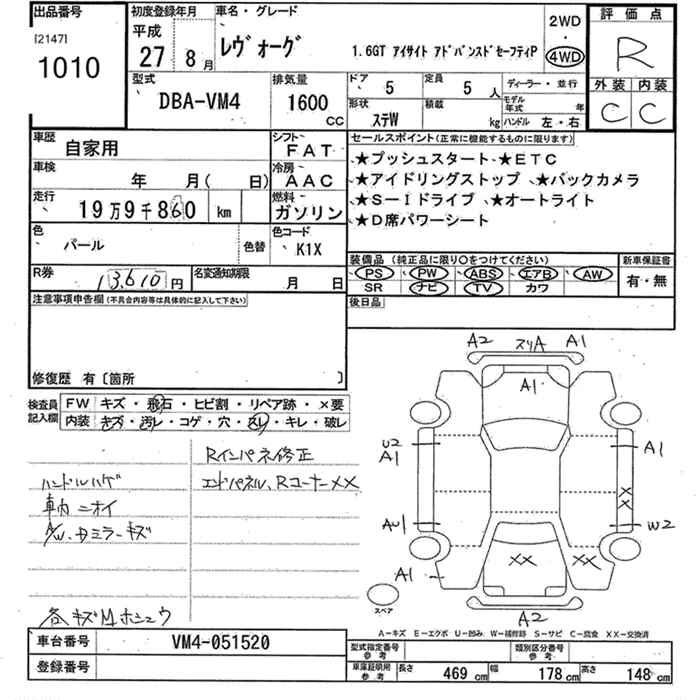 出品番号
[2147]
1010
初度登録年月
平成
27年
8月
車名・グレード
レヴォーグ
1.6GT アイサイト アドバンスドセーフティP
2WD
・
4WD
評価点
R
外装 内装
C C
型式
DBA-VM4
排気量
1600
CC
ドア
5
定員
5 人
ディーラー・並行
形状
ステW
積載
kg
モデル年式 年
ハンドル 左・右
車歴
自家用
シフト
FAT
車検
年 月( 日)
冷房
AAC
走行
19万9千860 km
燃料
ガソリン
色
パール
色替
色コード
K1X
R券
13,610円
名変通知期限
月 日
セールスポイント(正常に機能するものに限ります)
★プッシュスタート ★ETC
★アイドリングストップ ★バックカメラ
★S-Iドライブ ★オートライト
★D席パワーシート
装備品 (純正品に限り○をつけてください)
PS PW ABS エアB AW
SR ナビ TV カワ
新車保証書
有・無
後日品
注意事項申告欄(不具合内容等は具体的に記入して下さい)
修復歴 有〔箇所 〕
検査員
記入欄
FW キズ・飛石・ヒビ割・リペア跡・×要
内装 キズ・汚レ・コゲ・穴・スレ・キレ・破レ
Rインパネ修正
ハンドルハゲ
エンドパネル、Rコーナー××
車内ニオイ
A/W、ドミラーキズ
各キズMホシュウ
A2 スリA A1
A1
U2
A1
A1
×
×
AU1
W2
×× ××
A1
A2
スペア
A-キズ E-エクボ U-凹み W-補修跡 S-サビ C-腐食 XX-交換済
車台番号
VM4-051520
登録番号
型式指定番号
参考
類別区分番号
参考
車庫証明用
参考
長さ 469 cm
幅 178 cm
高さ 148 cm